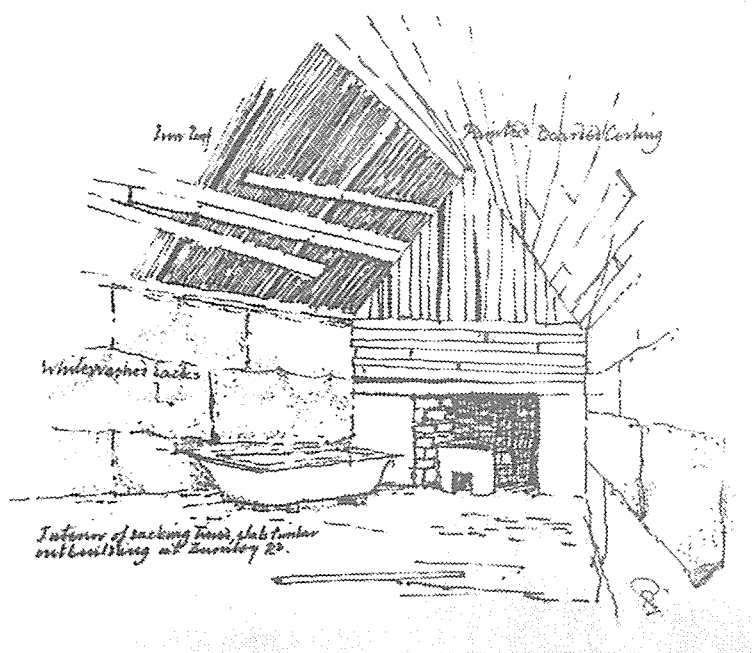 Iron Roof
Painted Boarded Ceiling
Whitewashed Sacks
Interior of sacking lined, slab timber
outbuilding at